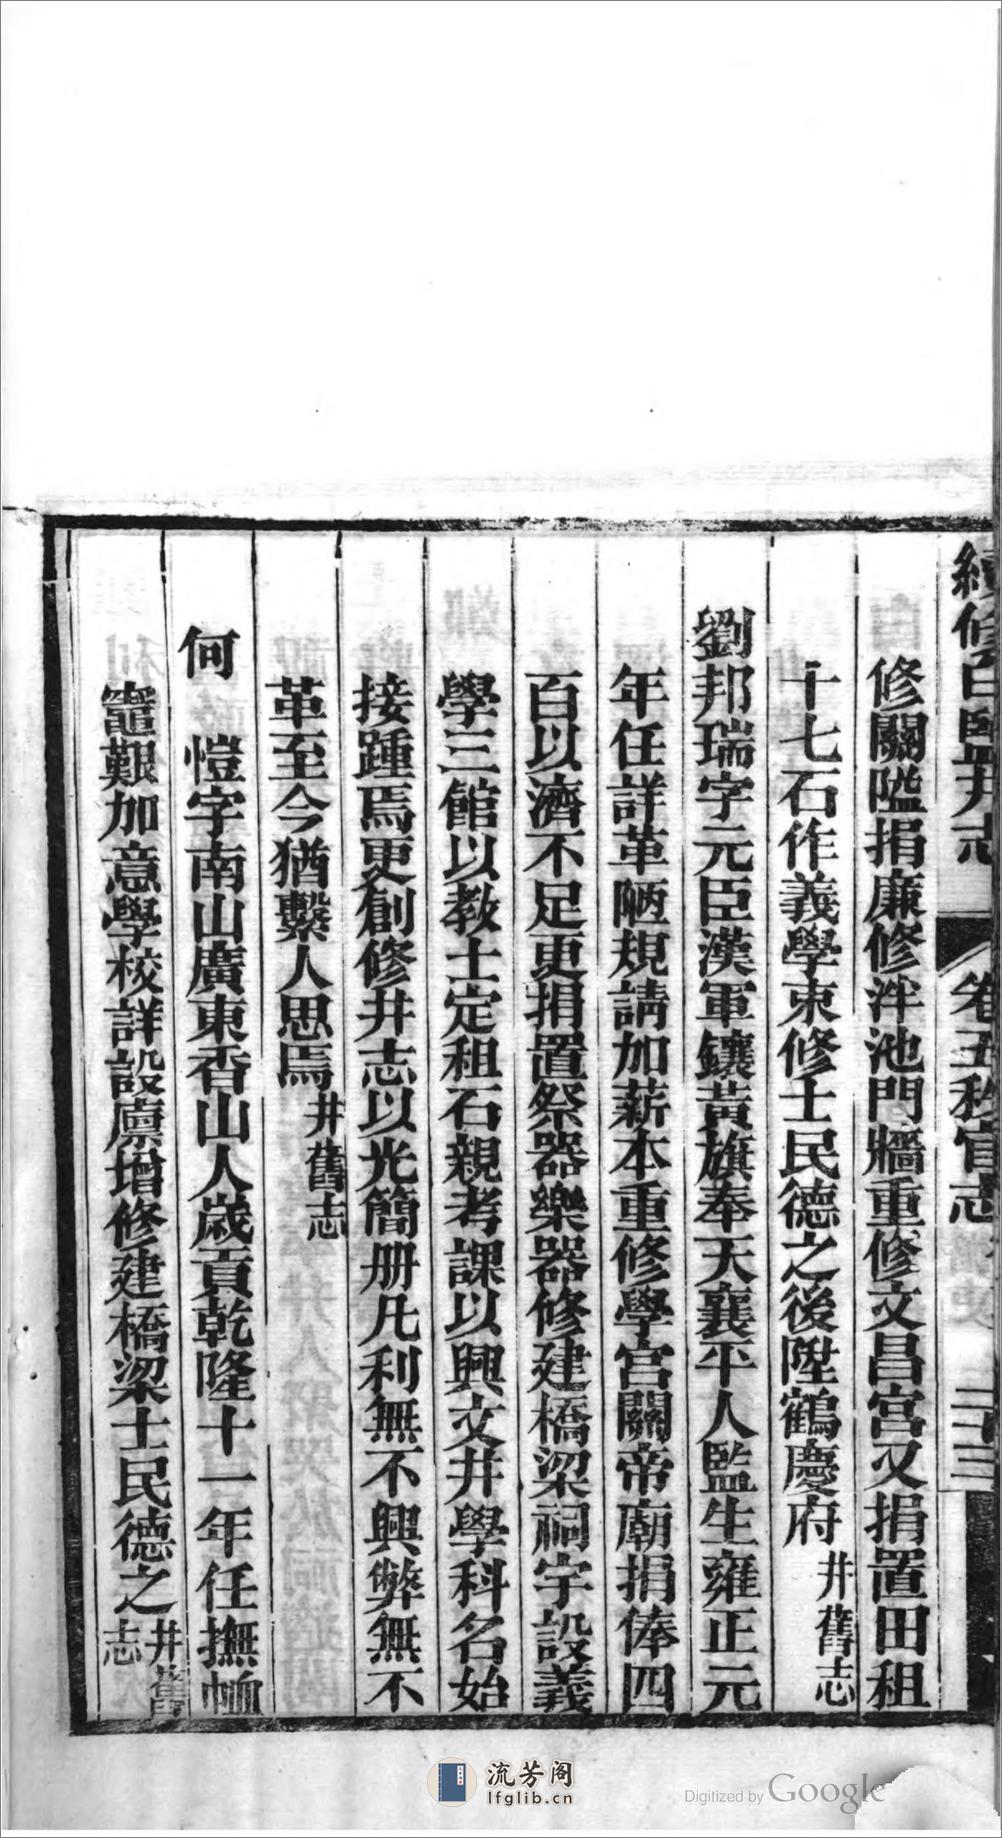 續修白鹽井志 卷五秩官志 二十三
修關隘捐廉修泮池門牆重修文昌宮又捐置田租
十七石作義學束修士民德之後陞鶴慶府井舊志
劉邦瑞字元臣漢軍鑲黃旗奉天襄平人監生雍正元
年任詳革陋規請加薪本重修學宮關帝廟捐俸四
百以濟不足更捐置祭器樂器修建橋梁祠宇設義
學三館以教士定租石親考課以興文井學科名始
接踵焉更創修井志以光簡册凡利無不興弊無不
革至今猶繫人思焉井舊志
何 愷字南山廣東香山人歲貢乾隆十一年任撫恤
竈艱加意學校詳設廩增修建橋梁士民德之井舊志
流芳阁
lfglib.cn
Digitized by Google